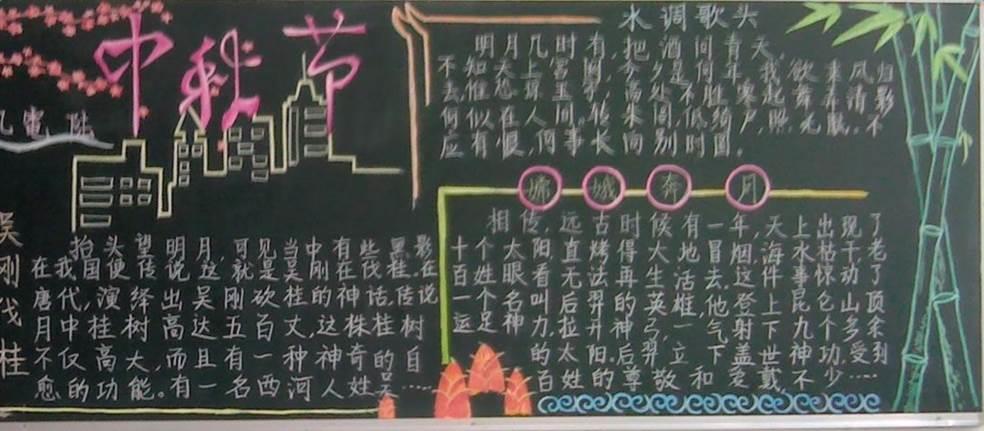 中秋节
水调歌头
明月几时有,把酒问青天。
不知天上宫阙,今夕是何年。我欲乘风归
去,惟恐琼玉宇,高处不胜寒。起舞弄清影
何似在人间。转朱阁,低绮户,照无眠。不
应有恨,何事长向别时圆。
吴刚伐桂
抬头望明月,可见当中有些黑影
在我国便传说这,就是吴刚在伐桂。在
唐代,演绎出吴刚砍桂的神话。传说
月中桂树高达五百丈,这株桂树
不仅高大,而且有一种神奇的自
愈的功能。有一名西河人姓吴……
嫦娥奔月
相传,远古时候有一年,天上出现了
十个太阳,直烤得大地冒烟,海水枯干,老
百姓眼看无法再生活去。这件事惊动了
一个名叫后羿的英雄,他登上昆仑山顶
运足神力,拉开神弓,一气射下九个多余
的太阳。后羿立下盖世神功,受到
百姓的尊敬和爱戴,不少……